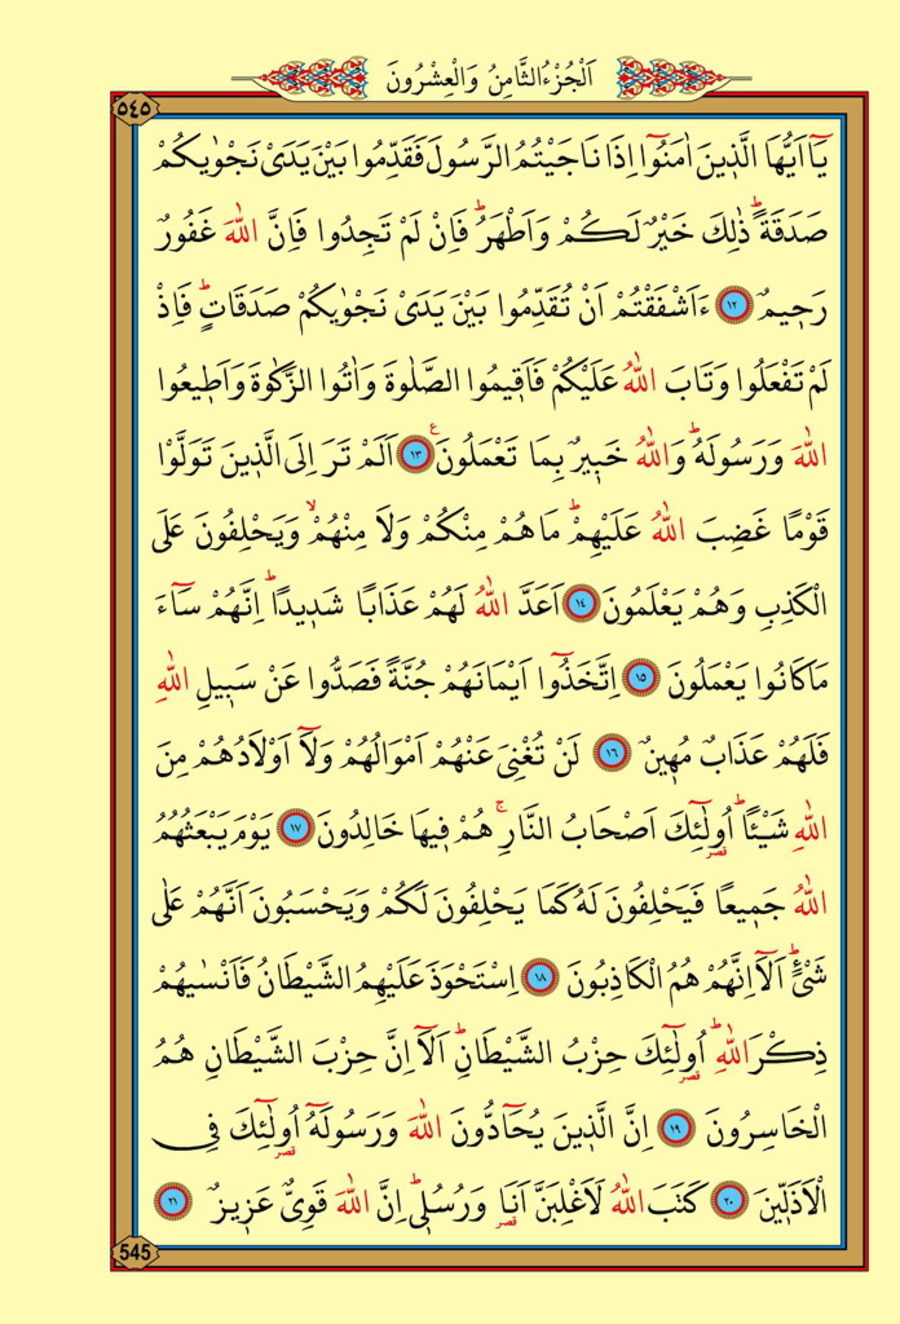 اَلْجُزْءُ الثَّامِنُ وَالْعِشْرُونَ
٥٤٥
يَٓا اَيُّهَا الَّذ۪ينَ اٰمَنُٓوا اِذَا نَاجَيْتُمُ الرَّسُولَ فَقَدِّمُوا بَيْنَ يَدَيْ نَجْوٰيكُمْ
صَدَقَةًۜ ذٰلِكَ خَيْرٌ لَكُمْ وَاَطْهَرُۜ فَاِنْ لَمْ تَجِدُوا فَاِنَّ اللّٰهَ غَفُورٌ
رَح۪يمٌ ﴿١٢﴾ ءَاَشْفَقْتُمْ اَنْ تُقَدِّمُوا بَيْنَ يَدَيْ نَجْوٰيكُمْ صَدَقَاتٍۜ فَاِذْ
لَمْ تَفْعَلُوا وَتَابَ اللّٰهُ عَلَيْكُمْ فَاَق۪يمُوا الصَّلٰوةَ وَاٰتُوا الزَّكٰوةَ وَاَط۪يعُوا
اللّٰهَ وَرَسُولَهُۜ وَاللّٰهُ خَب۪يرٌ بِمَا تَعْمَلُونَ۟ ﴿١٣﴾ اَلَمْ تَرَ اِلَى الَّذ۪ينَ تَوَلَّوْا
قَوْمًا غَضِبَ اللّٰهُ عَلَيْهِمْۜ مَا هُمْ مِنْكُمْ وَلَا مِنْهُمْۙ وَيَحْلِفُونَ عَلَى
الْكَذِبِ وَهُمْ يَعْلَمُونَ ﴿١٤﴾ اَعَدَّ اللّٰهُ لَهُمْ عَذَابًا شَد۪يدًاۜ اِنَّهُمْ سَٓاءَ
مَا كَانُوا يَعْمَلُونَ ﴿١٥﴾ اِتَّخَذُٓوا اَيْمَانَهُمْ جُنَّةً فَصَدُّوا عَنْ سَب۪يلِ اللّٰهِ
فَلَهُمْ عَذَابٌ مُه۪ينٌ ﴿١٦﴾ لَنْ تُغْنِيَ عَنْهُمْ اَمْوَالُهُمْ وَلَٓا اَوْلَادُهُمْ مِنَ
اللّٰهِ شَيْـًٔاۜ اُو۬لٰٓئِكَ اَصْحَابُ النَّارِۚ هُمْ ف۪يهَا خَالِدُونَ ﴿١٧﴾ يَوْمَ يَبْعَثُهُمُ
اللّٰهُ جَم۪يعًا فَيَحْلِفُونَ لَهُ كَمَا يَحْلِفُونَ لَكُمْ وَيَحْسَبُونَ اَنَّهُمْ عَلٰى
شَيْءٍۜ اَلَٓا اِنَّهُمْ هُمُ الْكَاذِبُونَ ﴿١٨﴾ اِسْتَحْوَذَ عَلَيْهِمُ الشَّيْطَانُ فَاَنْسٰيهُمْ
ذِكْرَ اللّٰهِۜ اُو۬لٰٓئِكَ حِزْبُ الشَّيْطَانِۜ اَلَٓا اِنَّ حِزْبَ الشَّيْطَانِ هُمُ
الْخَاسِرُونَ ﴿١٩﴾ اِنَّ الَّذ۪ينَ يُحَٓادُّونَ اللّٰهَ وَرَسُولَهُٓ اُو۬لٰٓئِكَ فِي
الْاَذَلّ۪ينَ ﴿٢٠﴾ كَتَبَ اللّٰهُ لَاَغْلِبَنَّ اَنَا۬ وَرُسُل۪يۜ اِنَّ اللّٰهَ قَوِيٌّ عَز۪يزٌ ﴿٢١﴾
545